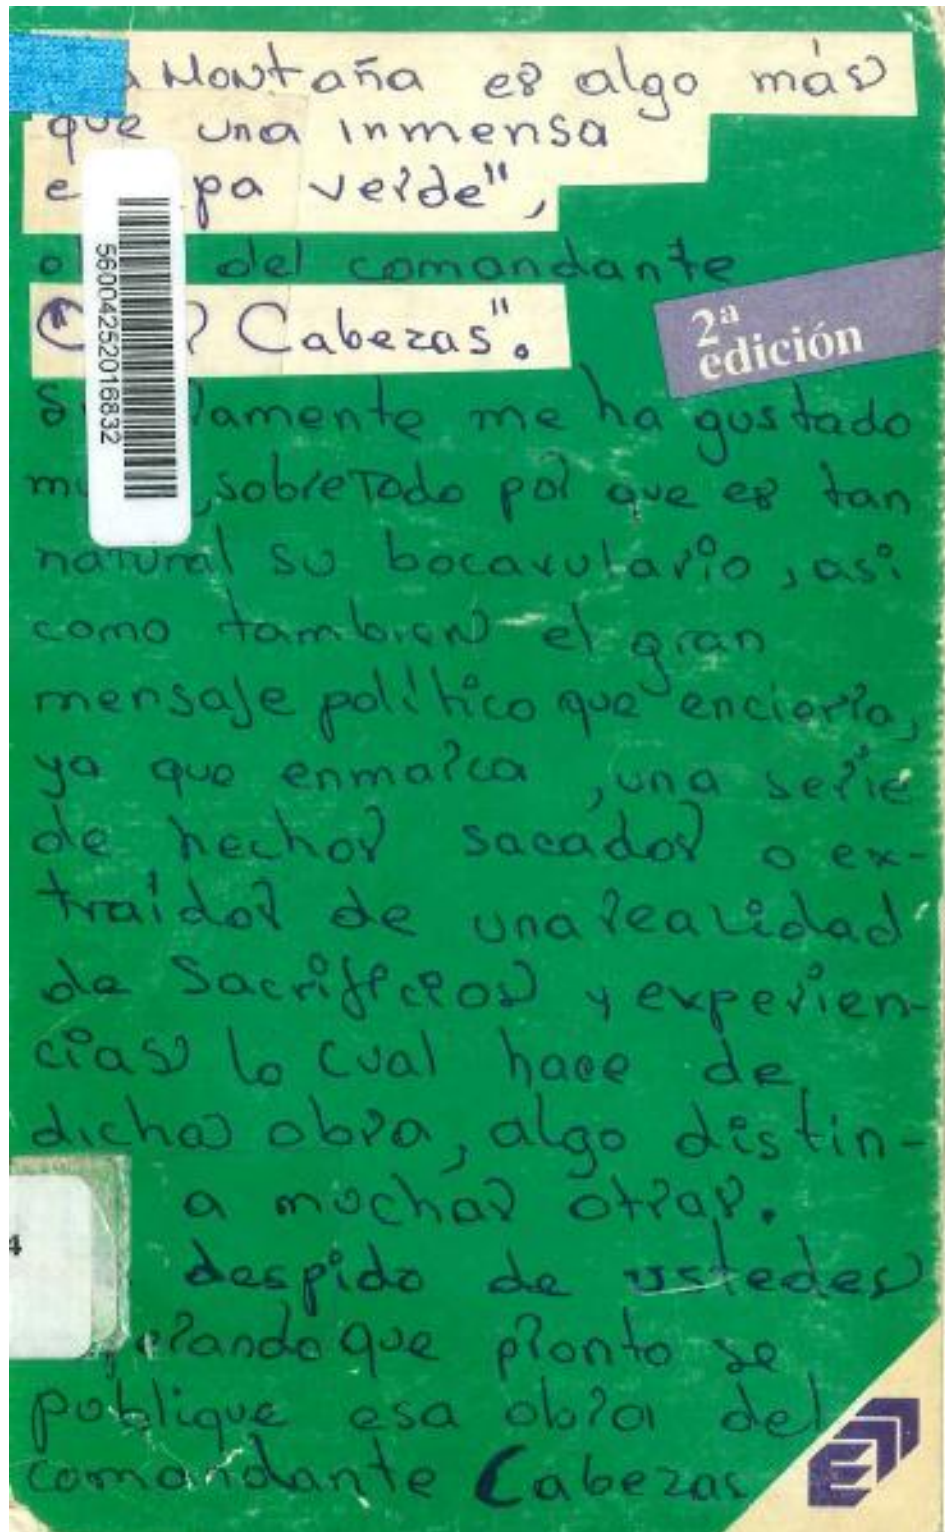 Montaña es algo más
que una inmensa
verde",
del comandante
Cabezas".
2ª
edición
me ha gustado
sobretodo por que es tan
natural su bocavulario, asi
como tambien el gran
mensaje político que encierra,
ya que enmarca, una serie
de hechos sacados o ex-
traidos de una realidad
de Sacrificios y experien-
cias lo cual hace de
dicha obra, algo distin-
a muchas otras.
despido de ustedes
que pronto se
publique esa obra del
comandante Cabezas
56004252016832
4
E